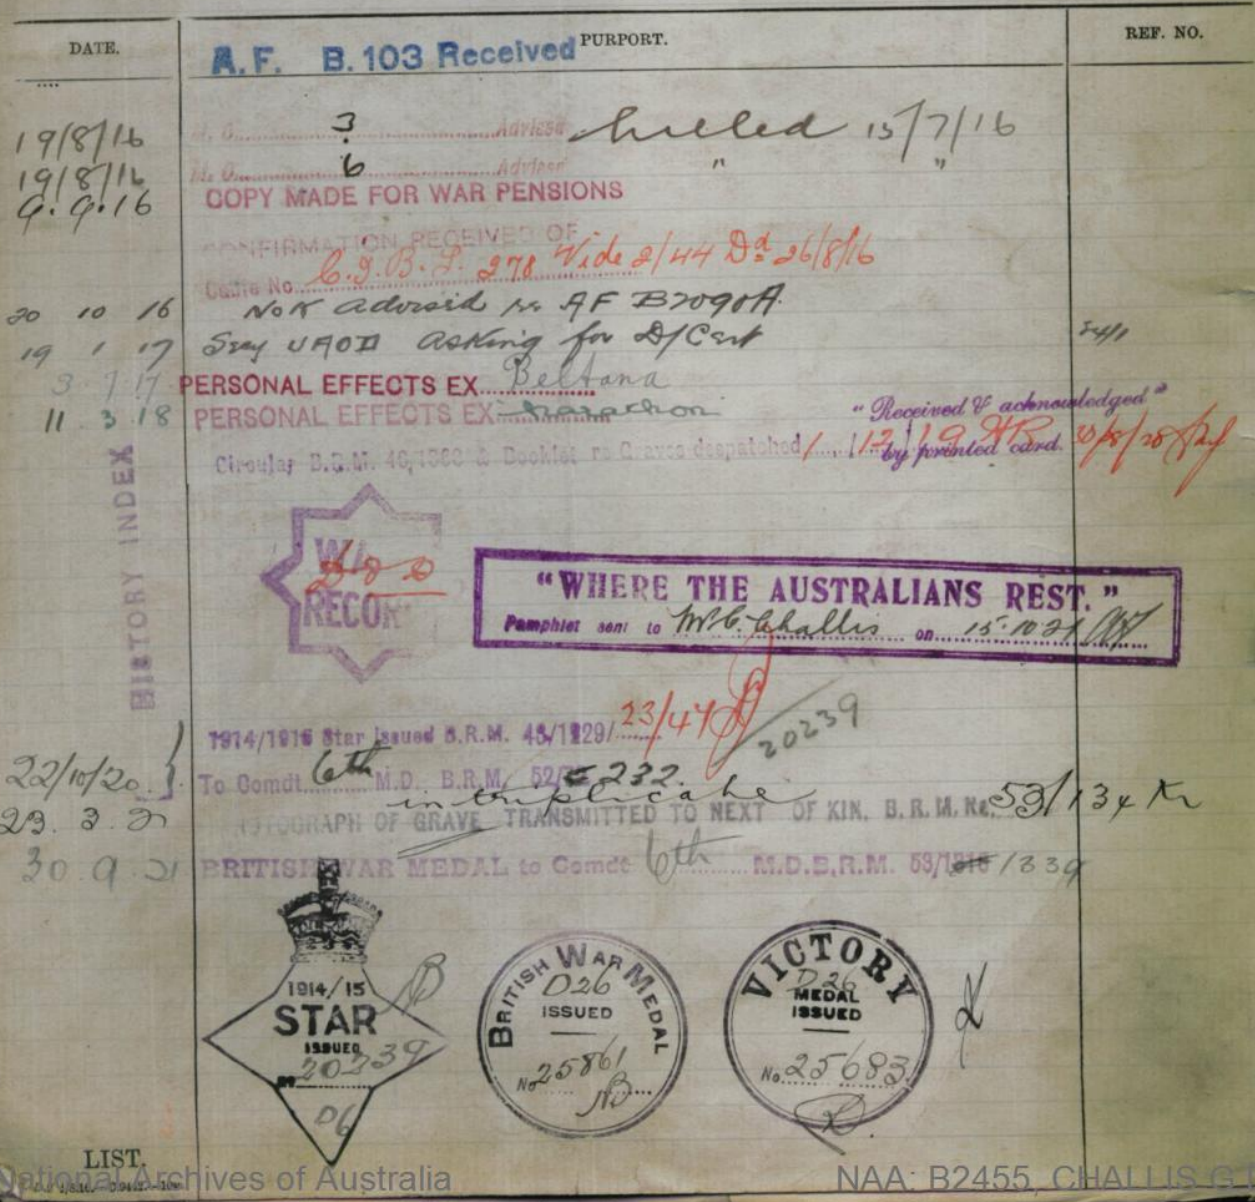 DATE. A.F. B.103 Received PURPORT. REF. NO.
19/8/16 3 Advised killed 15/7/16
19/8/16 6 Advised " "
9.9.16 COPY MADE FOR WAR PENSIONS
CONFIRMATION RECEIVED OF
Cable No. 278 Vide 2/44 Dd 26/8/16
20 10 16 NoK advised AF B2090A.
19 1 17 Secy UAOD asking for D/Cert
3 7 17 PERSONAL EFFECTS EX Beltana
11 3 18 PERSONAL EFFECTS EX Marathon
"Received & acknowledged"
by printed card.
Circular B.R.M. & Booklet re Graves despatched
HISTORY INDEX
RECOR
"WHERE THE AUSTRALIANS REST."
Pamphlet sent to Challis on 15.10.21
1914/1915 Star Issued B.R.M. 46/1229/ 23/47
20239
22/10/20 To Comdt 6th M.D. B.R.M. 52/ 232
in triplicate
23.3.21 PHOTOGRAPH OF GRAVE TRANSMITTED TO NEXT OF KIN. B.R.M. No. 53/134
30.9.21 BRITISH WAR MEDAL to Comdt 6th M.D.B.R.M. 53/ 1339
1914/15
STAR
ISSUED
No 20239
D6
BRITISH WAR MEDAL
D26
ISSUED
No 25861
VICTORY
D26
MEDAL
ISSUED
No. 25683
LIST.
National Archives of Australia NAA: B2455, CHALLIS G